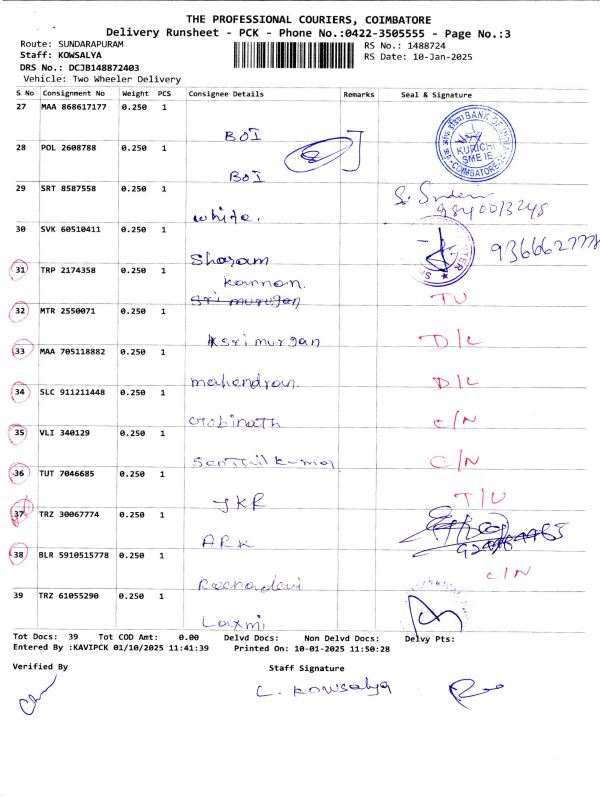 THE PROFESSIONAL COURIERS, COIMBATORE
Delivery Runsheet - PCK - Phone No.:0422-3505555 - Page No.:3
Route: SUNDARAPURAM RS No.: 1488724
Staff: KOWSALYA RS Date: 10-Jan-2025
DRS No.: DCJB148872403
Vehicle: Two Wheeler Delivery
S No Consignment No Weight PCS Consignee Details Remarks Seal & Signature
27 MAA 868617177 0.250 1
BOI
BANK OF INDIA
KURICHI
SME IE
COIMBATORE
28 POL 2608788 0.250 1
BOI
29 SRT 8587558 0.250 1
white.
9840013248
30 SVK 60510411 0.250 1
Sharam
31 TRP 2174358 0.250 1
kannan.
sri murugan
TU
32 MTR 2550071 0.250 1
sri murgan D/L
33 MAA 705118882 0.250 1
mahendran. D/L
34 SLC 911211448 0.250 1
Gobinath C/N
35 VLI 340129 0.250 1
Senthil kumar C/N
36 TUT 7046685 0.250 1
JKR T/U
37 TRZ 30067774 0.250 1
ARK
38 BLR 5910515778 0.250 1
Reenadevi C/N
39 TRZ 61055290 0.250 1
Laxmi
Tot Docs: 39 Tot COD Amt: 0.00 Delvd Docs: Non Delvd Docs: Delvy Pts:
Entered By :KAVIPCK 01/10/2025 11:41:39 Printed On: 10-01-2025 11:50:28
Verified By Staff Signature
C. Kowsalya